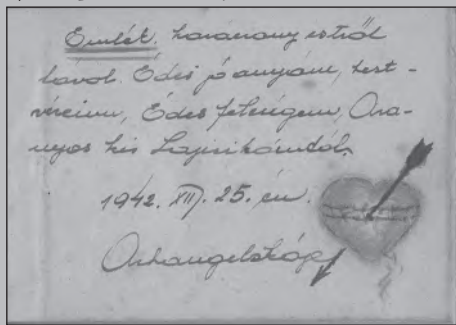 Emlék. karácsony estről
távol. Édes jó anyám, test-
véreim, Édes feleségem, Ara-
nyos kis Lajosikámtól.
1942. XII. 25. én.
Arhangelszkoje